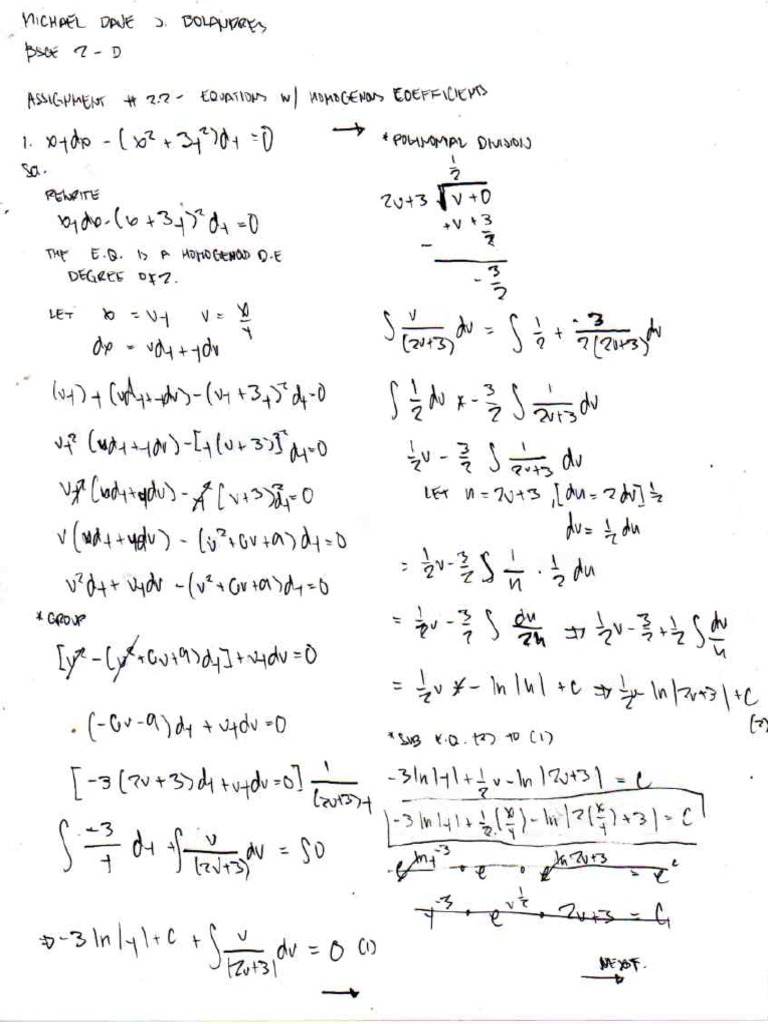 MICHAEL DAVE J. BOLANDRES
BSCE 2 - D
ASSIGNMENT # 2.2 - EQUATIONS W/ HOMOGENOUS COEFFICIENTS
1. xydx - (x² + 3y²)dy = 0
Sol.
REWRITE
xydx - (x + 3y)² dy = 0
THE E.Q. IS A HOMOGENOUS D.E
DEGREE OF 2.
LET x = vy v = x/y
dx = vdy + ydv
(vy)y(vdy + ydv) - (vy + 3y)² dy = 0
vy² (vdy + ydv) - [y(v + 3)]² dy = 0
vy² (vdy + ydv) - y² (v + 3)² dy = 0
v(vdy + ydv) - (v² + 6v + 9)dy = 0
v²dy + vydv - (v² + 6v + 9)dy = 0
* GROUP
[v² - (v² + 6v + 9)dy] + vydv = 0
(-6v - 9)dy + vydv = 0
[-3(2v + 3)dy + vydv = 0] 1/(2v+3)y
∫ -3/y dy + ∫ v/(2v+3) dv = ∫0
⇒ -3 ln|y| + C + ∫ v/(2v+3) dv = 0 (1)
→
→ * POLINOMIAL DIVISION
1/2
2v+3 √v + 0
+v + 3/2
-
- 3/2
∫ v/(2v+3) dv = ∫ 1/2 + -3/2(2v+3) dv
∫ 1/2 dv - 3/2 ∫ 1/(2v+3) dv
1/2 v - 3/2 ∫ 1/(2v+3) dv
LET u = 2v+3, [du = 2dv] 1/2
dv = 1/2 du
= 1/2 v - 3/2 ∫ 1/u · 1/2 du
= 1/2 v - 3/2 ∫ du/2u ⇒ 1/2 v - 3/2 + 1/2 ∫ du/u
= 1/2 v - ln|u| + C ⇒ 1/2 v - ln|2v+3| + C
(2)
* SUB E.Q. (2) TO (1)
-3 ln|y| + 1/2 v - ln|2v+3| = C
-3 ln|y| + 1/2 (x/y) - ln|2(x/y) + 3| = C
e^ln y^-3 · e · e^ln 2v+3 = e^c
y^-3 · e^v 1/2 · 2v+3 = C
NEXT.
→